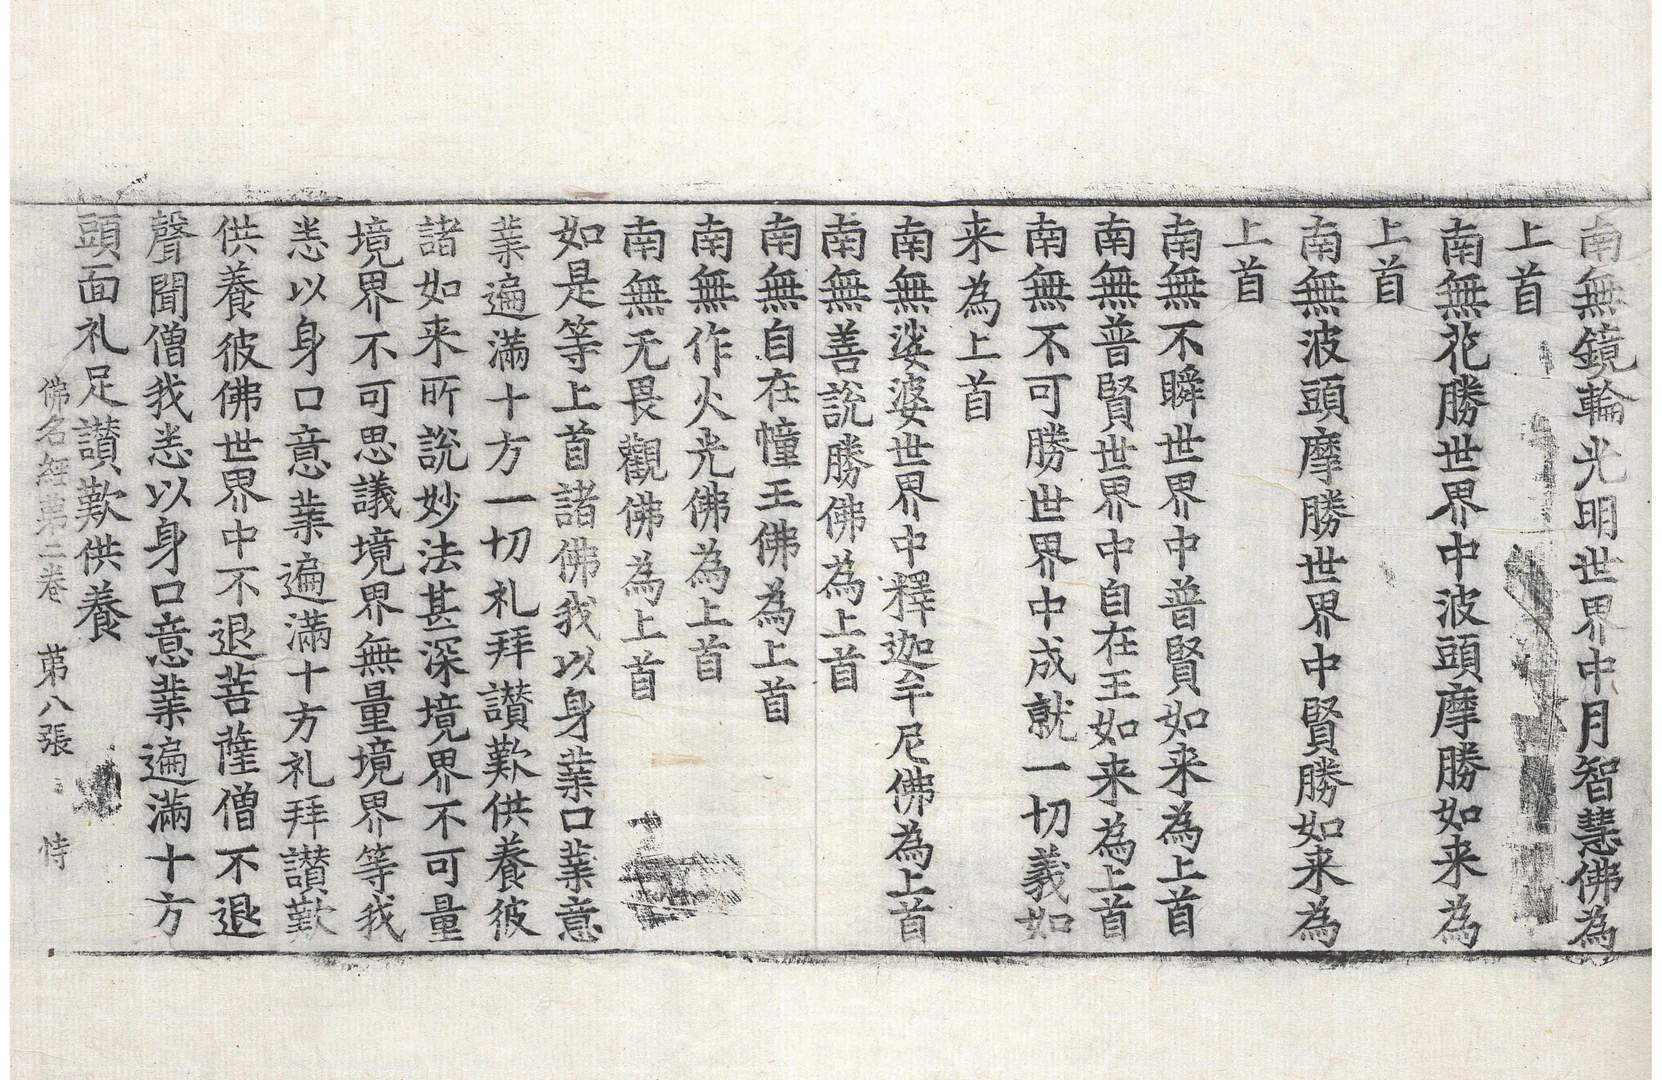 南無鏡輪光明世界中月智慧佛為
上首
南無花勝世界中波頭摩勝如来為
上首
南無波頭摩勝世界中賢勝如来為
上首
南無不瞬世界中普賢如来為上首
南無普賢世界中自在王如来為上首
南無不可勝世界中成就一切義如
来為上首
南無娑婆世界中釋迦牟尼佛為上首
南無善說勝佛為上首
南無自在幢王佛為上首
南無作火光佛為上首
南無无畏觀佛為上首
如是等上首諸佛我以身業口業意
業遍滿十方一切礼拜讃歎供養彼
諸如来所說妙法甚深境界不可量
境界不可思議境界無量境界等我
悉以身口意業遍滿十方礼拜讃歎
供養彼佛世界中不退菩薩僧不退
聲聞僧我悉以身口意業遍滿十方
頭面礼足讃歎供養
佛名經第二卷 第八張 恃